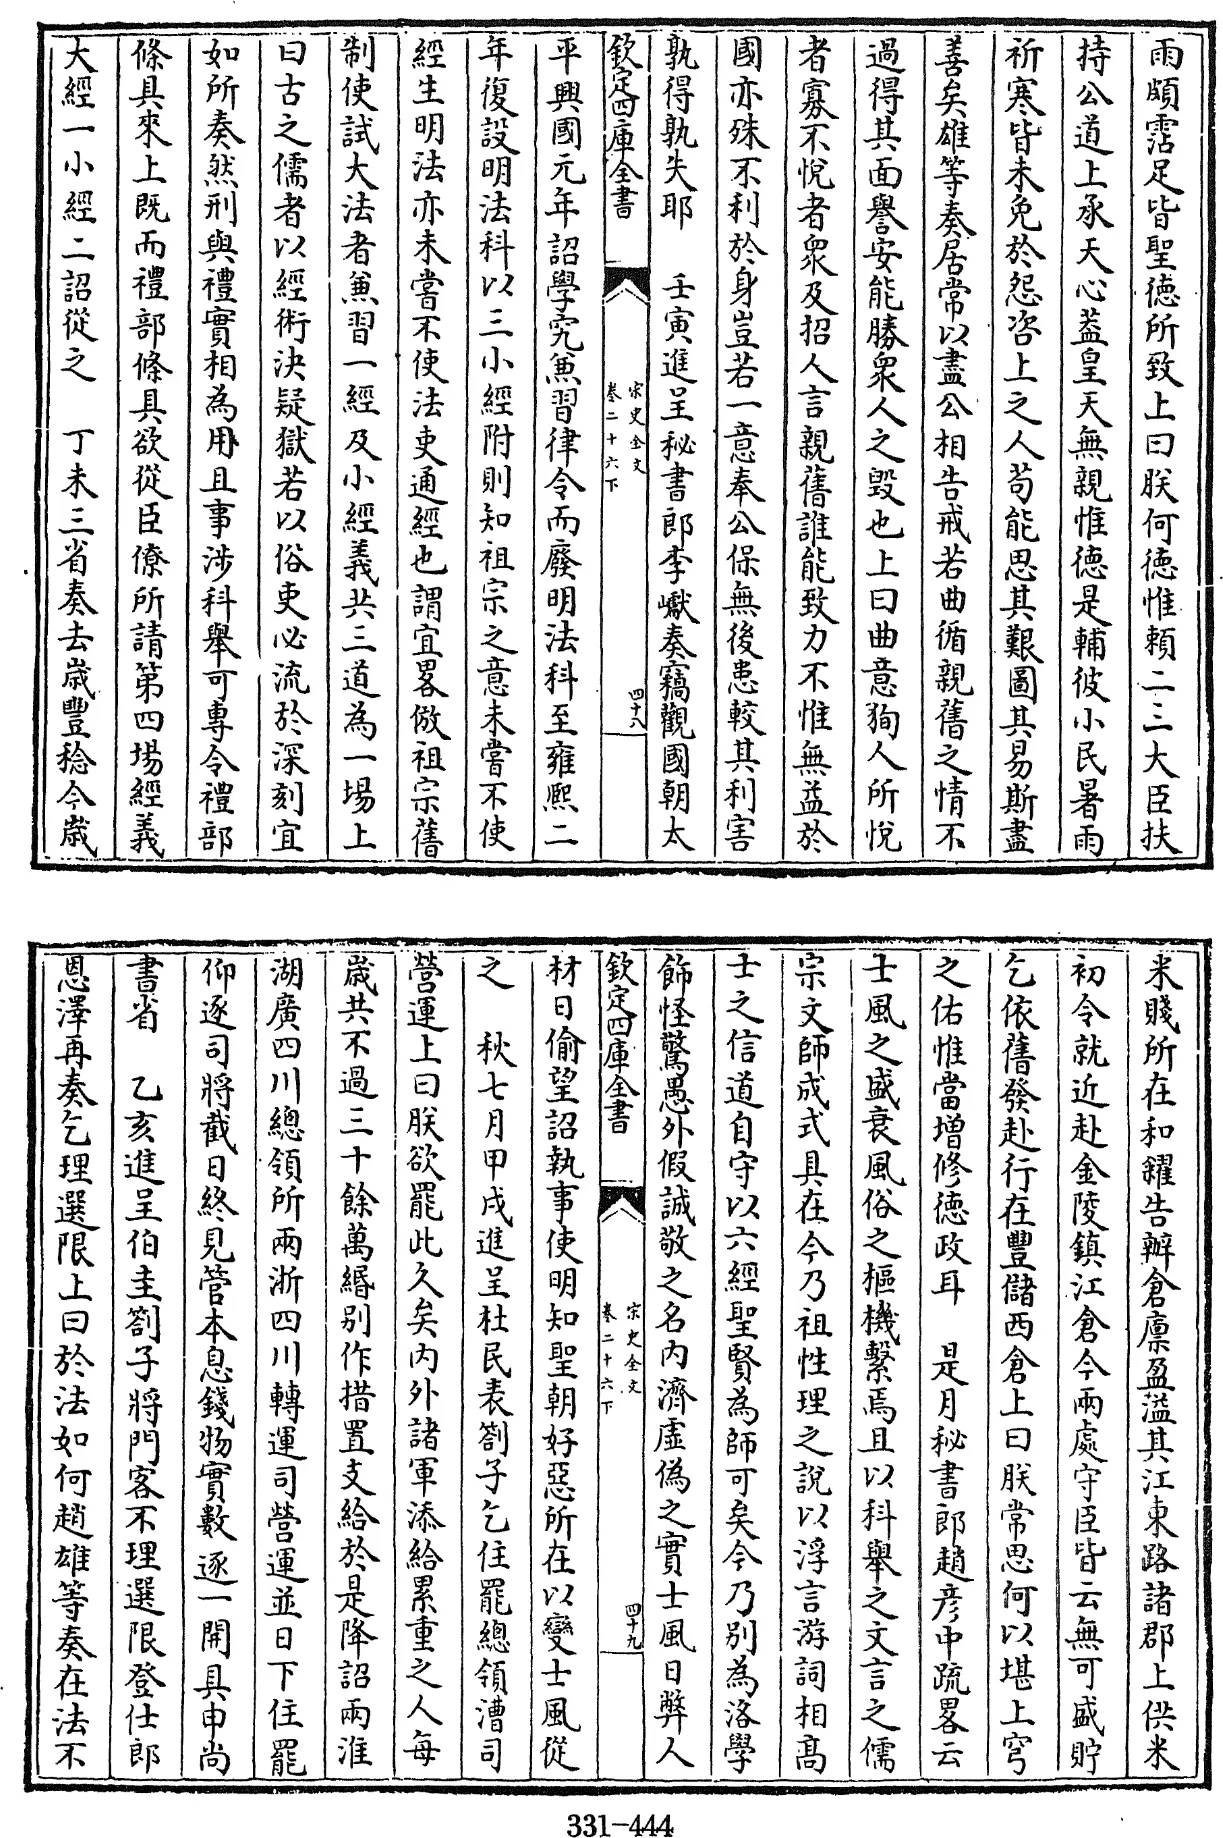 雨頗霑足皆聖徳所致上曰朕何徳惟頼二三大臣扶
持公道上承天心葢皇天無親惟徳是輔彼小民暑雨
祈寒皆未免於怨咨上之人茍能思其艱圖其易斯盡
善矣雄等奏居常以盡公相告戒若曲循親舊之情不
過得其面譽安能勝衆人之毀也上曰曲意狥人所悅
者寡不悅者衆及招人言親舊誰能致力不惟無益於
國亦殊不利於身豈若一意奉公保無後患較其利害
孰得孰失耶　壬寅進呈秘書郎李巘奏竊觀國朝太
欽定四庫全書
宋史全文
卷二十六下
四十八
平興國元年詔學究兼習律令而廢明法科至雍熈二
年復設明法科以三小經附則知祖宗之意未嘗不使
經生明法亦未嘗不使法吏通經也謂宜畧倣祖宗舊
制使試大法者兼習一經及小經義共三道為一場上
曰古之儒者以經術決疑獄若以俗吏必流於深刻宜
如所奏然刑與禮實相為用且事涉科舉可專令禮部
條具來上既而禮部條具欲從臣僚所請第四場經義
大經一小經二詔從之　丁未三省奏去歲豐稔今歲
米賤所在和糴告辦倉廪盈溢其江東路諸郡上供米
初令就近赴金陵鎮江倉今兩處守臣皆云無可盛貯
乞依舊發赴行在豐儲西倉上曰朕常思何以堪上穹
之佑惟當增修徳政耳　是月秘書郎趙彦中疏畧云
士風之盛衰風俗之樞機繫焉且以科舉之文言之儒
宗文師成式具在今乃祖性理之說以浮言游詞相高
士之信道自守以六經聖賢為師可矣今乃别為洛學
飾怪驚愚外假誠敬之名内濟虚偽之實士風日弊人
欽定四庫全書
宋史全文
卷二十六下
四十九
材日偷望詔執事使明知聖朝好惡所在以變士風從
之　秋七月甲戌進呈杜民表劄子乞住罷總領漕司
營運上曰朕欲罷此久矣内外諸軍添給累重之人每
歲共不過三十餘萬緡别作措置支給於是降詔兩淮
湖廣四川總領所兩浙四川轉運司營運並日下住罷
仰逐司將截日終見管本息錢物實數逐一開具申尚
書省　乙亥進呈伯圭劄子將門客不理選限登仕郎
恩澤再奏乞理選限上曰於法如何趙雄等奏在法不
331-444